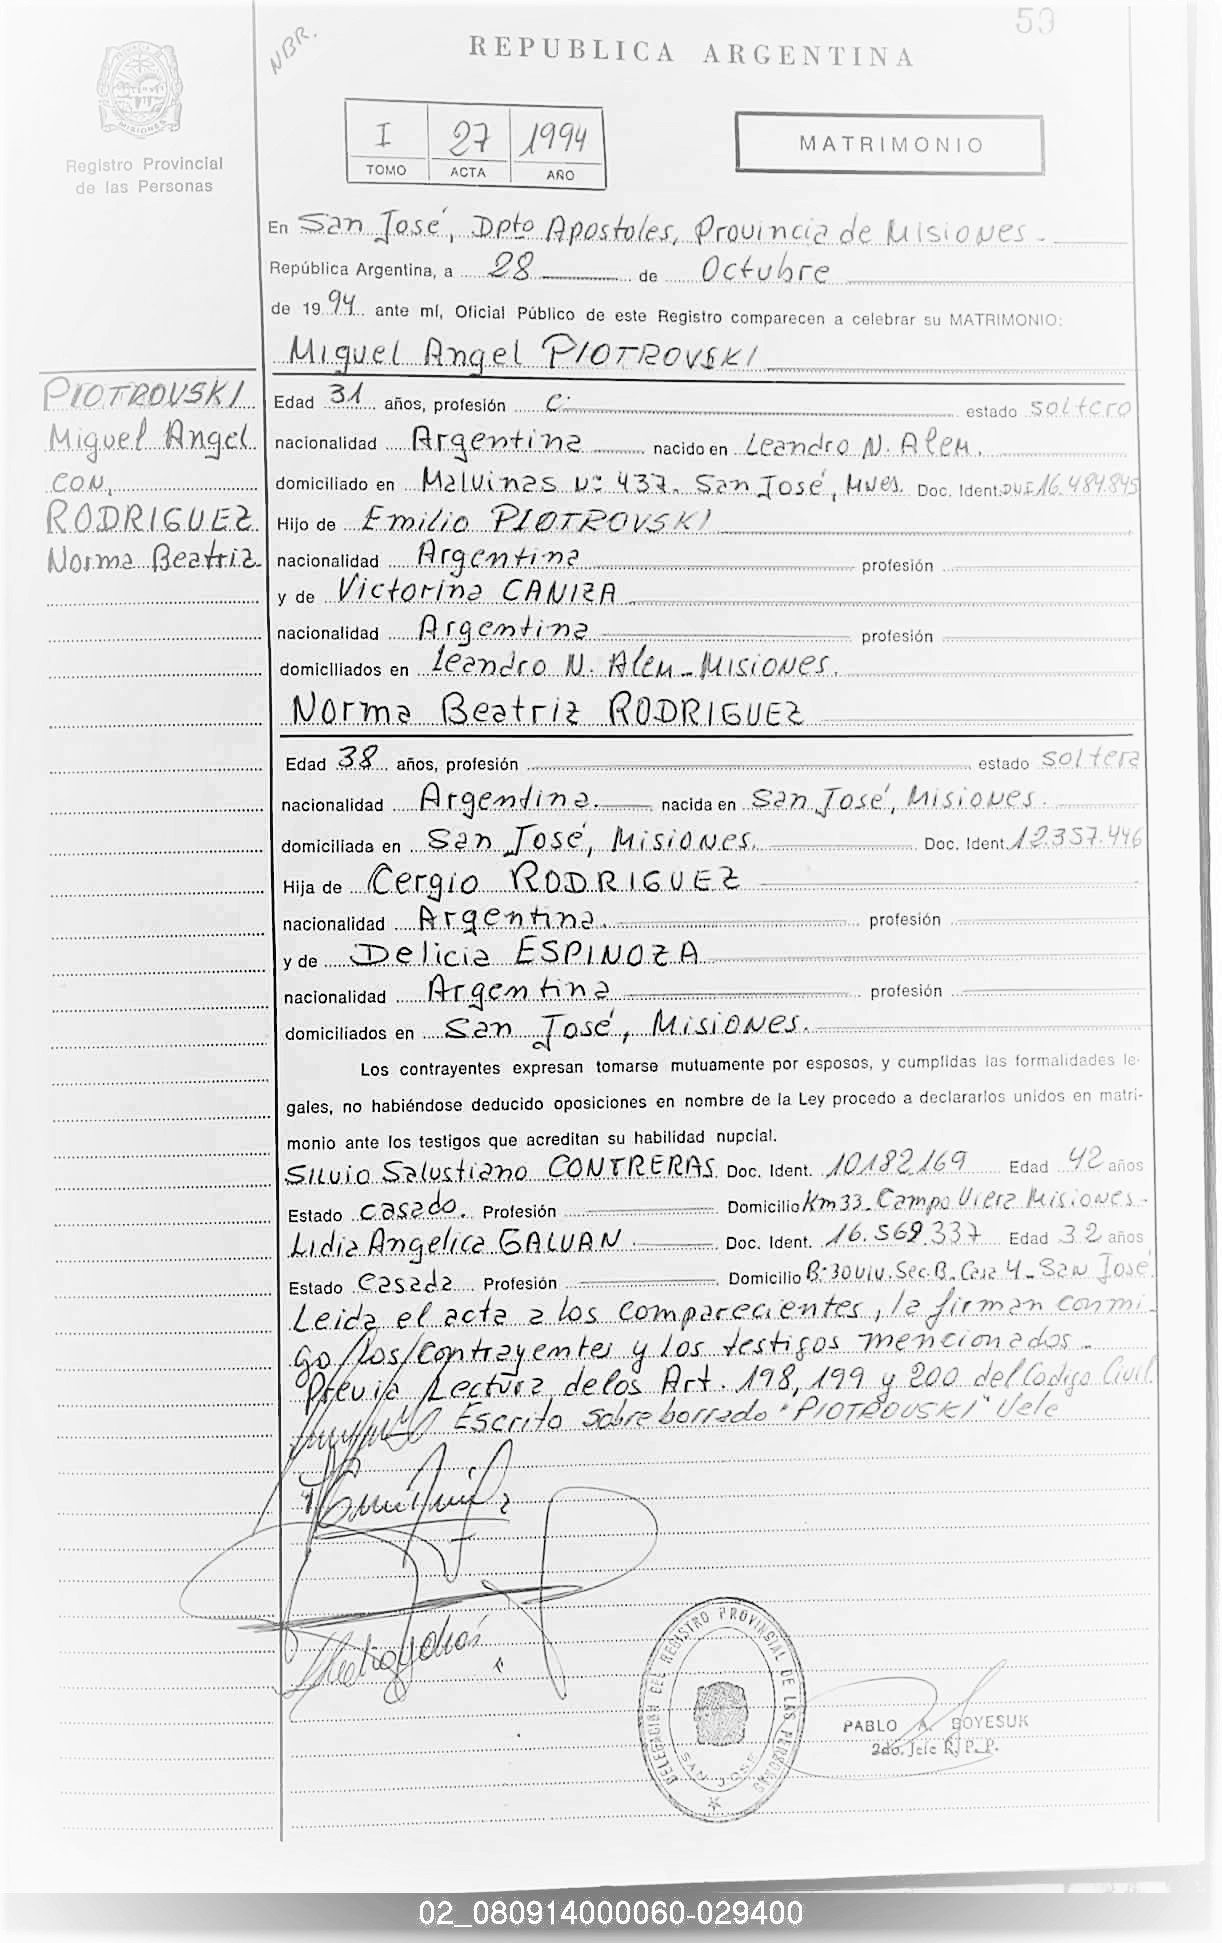 59
NBR.
REPUBLICA ARGENTINA
MISIONES
Registro Provincial
de las Personas
I 27 1994
TOMO ACTA AÑO
MATRIMONIO
En San José, Dpto Apostoles, Provincia de Misiones.
República Argentina, a 28 de Octubre
de 1994 ante mí, Oficial Público de este Registro comparecen a celebrar su MATRIMONIO:
Miguel Angel PIOTROVSKI
PIOTROVSKI
Miguel Angel
CON,
RODRIGUEZ
Norma Beatriz
Edad 31 años, profesión c. estado soltero
nacionalidad Argentina nacido en Leandro N. Alem.
domiciliado en Malvinas Nº 437. San José, Mnes. Doc. Ident. DNI 16.484.845
Hijo de Emilio PIOTROVSKI
nacionalidad Argentina profesión
y de Victorina CANIZA
nacionalidad Argentina profesión
domiciliados en Leandro N. Alem - Misiones.
Norma Beatriz RODRIGUEZ
Edad 38 años, profesión estado soltera
nacionalidad Argentina. nacida en San José, Misiones.
domiciliada en San José, Misiones. Doc. Ident. 12.357.446
Hija de Cergio RODRIGUEZ
nacionalidad Argentina. profesión
y de Delicia ESPINOZA
nacionalidad Argentina profesión
domiciliados en San José, Misiones.
Los contrayentes expresan tomarse mutuamente por esposos, y cumplidas las formalidades le-
gales, no habiéndose deducido oposiciones en nombre de la Ley procedo a declararlos unidos en matri-
monio ante los testigos que acreditan su habilidad nupcial.
Silvio Salustiano CONTRERAS Doc. Ident. 10182169 Edad 42 años
Estado casado. Profesión Domicilio Km 33. Campo Viera Misiones.
Lidia Angelica GALVAN Doc. Ident. 16.569.337 Edad 32 años
Estado Casada Profesión Domicilio Bº 30 Viv. Sec. B. Casa 4 - San José
Leida el acta a los comparecientes, la firman conmi-
go/los/contrayentes y los testigos mencionados.
Previa Lectura de los Art. 198, 199 y 200 del Codigo Civil.
Escrito sobre borrado "PIOTROVSKI" Vale
DELEGACION DEL REGISTRO PROVINCIAL DE LAS PERSONAS
SAN JOSE
PABLO A. BOYESUK
2do. Jefe R. P. P.
02_080914000060-029400